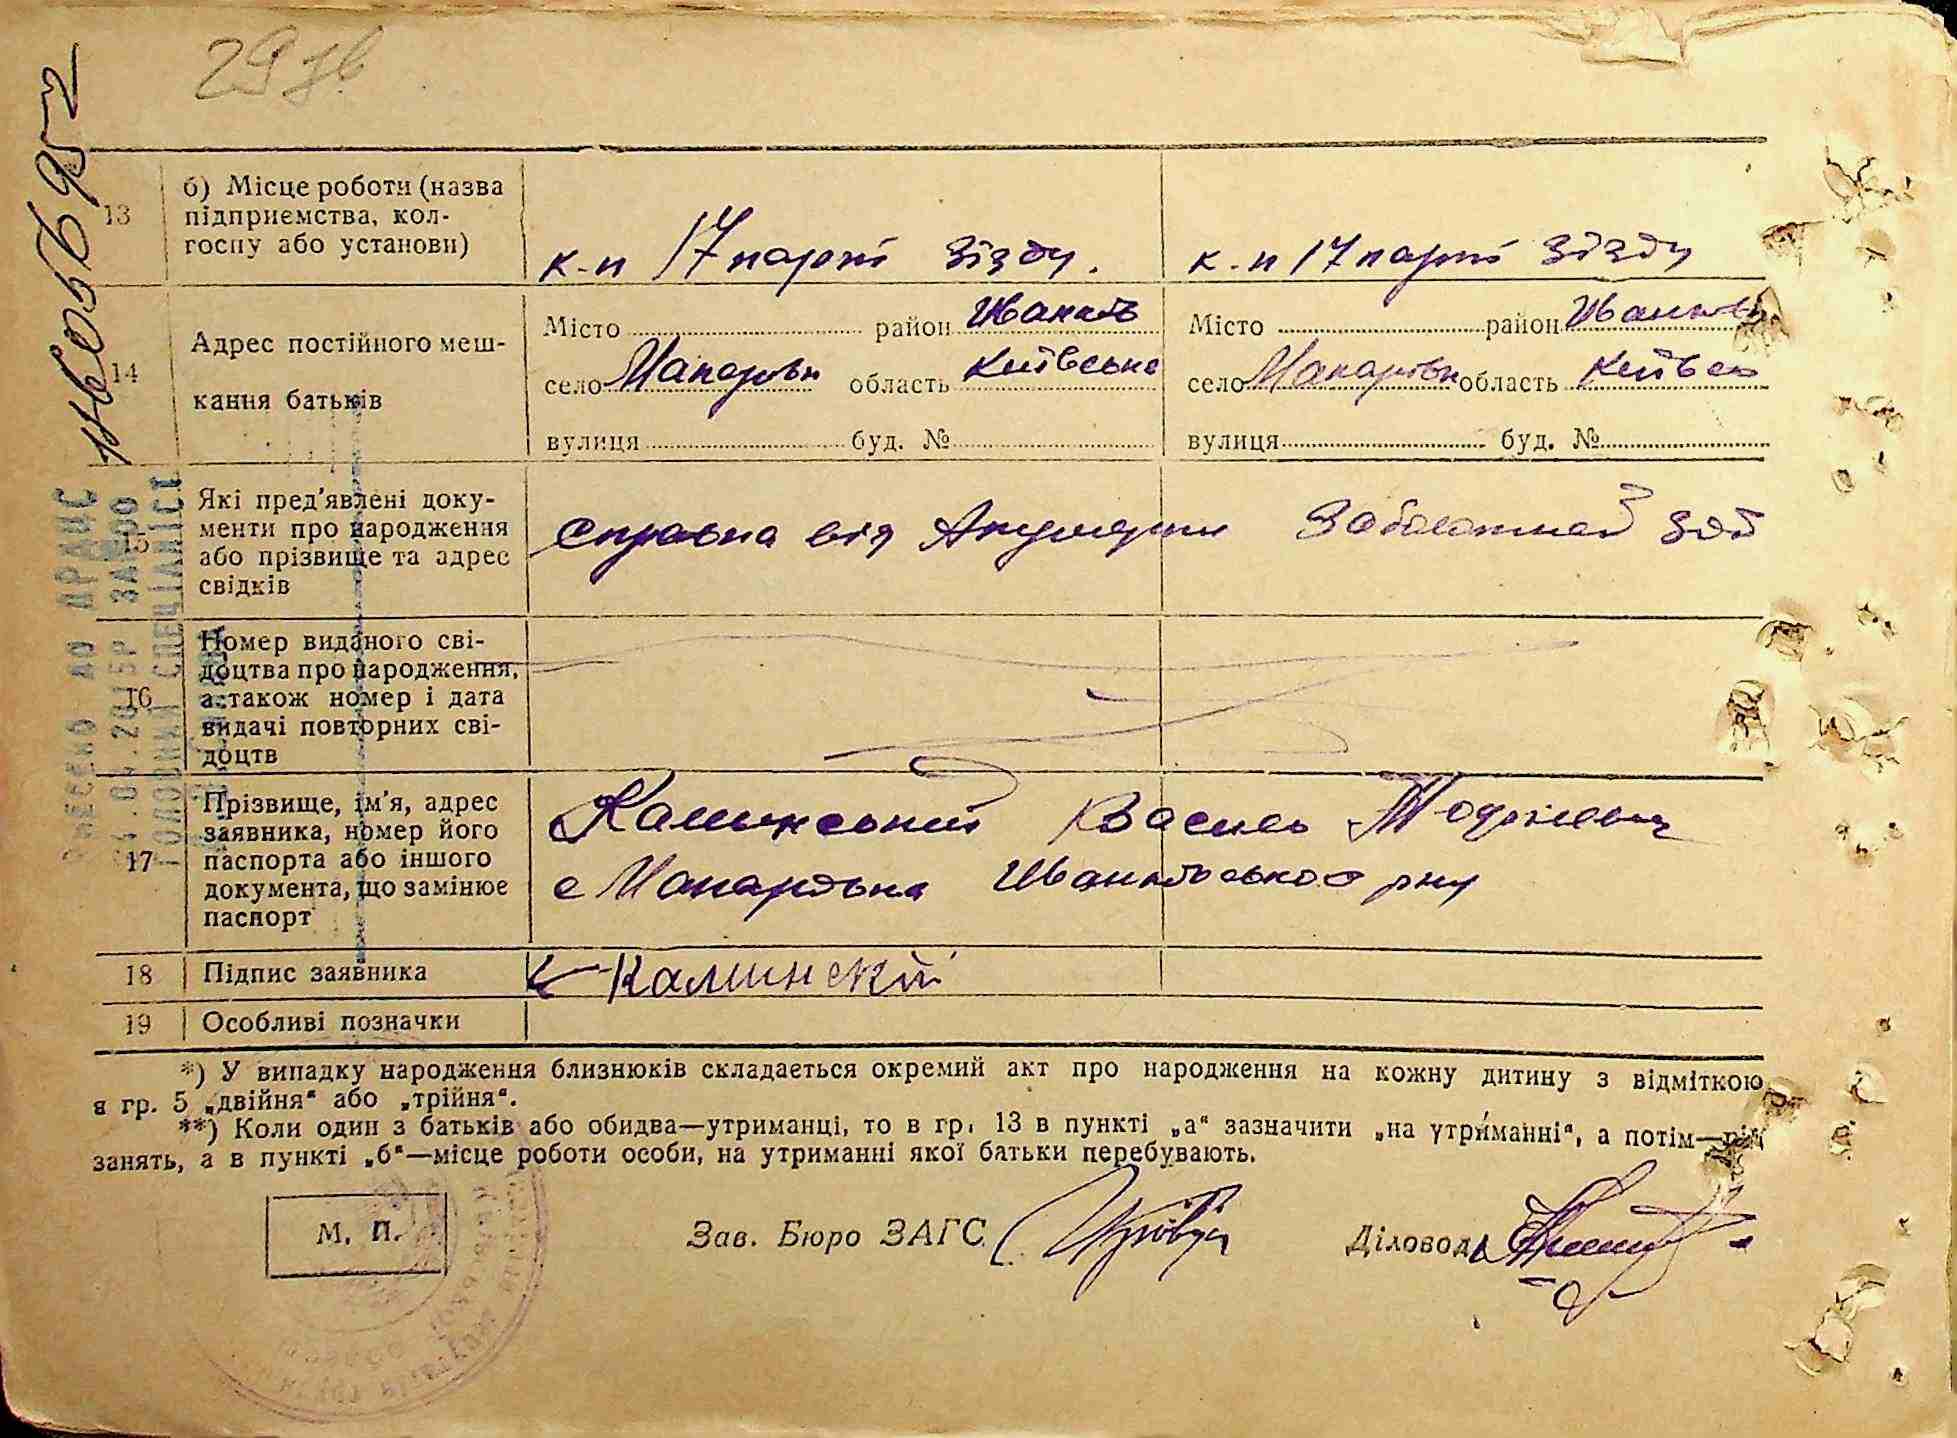 29 зв
13 б) Місце роботи (назва
підприємства, кол-
госпу або установи)
к-п 17 парті зізду.
к-п 17 парті зізду
14 Адрес постійного меш-
кання батьків
Місто район Іванків
село Макарівк область Київська
вулиця буд. №
Місто район Іванків
село Макарівк область Київсь
вулиця буд. №
15 Які пред'явлені доку-
менти про народження
або прізвище та адрес
свідків
Справка від Акушерки Заболотной Зої
16 Номер виданого сві-
доцтва про народження,
а також номер і дата
видачі повторних сві-
доцтв
17 Прізвище, ім'я, адрес
заявника, номер його
паспорта або іншого
документа, що замінює
паспорт
Каминський Василь
с Макарівка Іванківського р-ну
18 Підпис заявника
Каминский
19 Особливі позначки
*) У випадку народження близнюків складається окремий акт про народження на кожну дитину з відміткою
в гр. 5 „двійня" або „трійня".
**) Коли один з батьків або обидва—утриманці, то в гр. 13 в пункті „а" зазначити „на утриманні", а потім—рід
занять, а в пункті „б"—місце роботи особи, на утриманні якої батьки перебувають.
М. П.
Зав. Бюро ЗАГС
Діловод
ВНЕСЕНО ДО ДРАЦС
ГОЛОВНИЙ СПЕЦІАЛІСТ